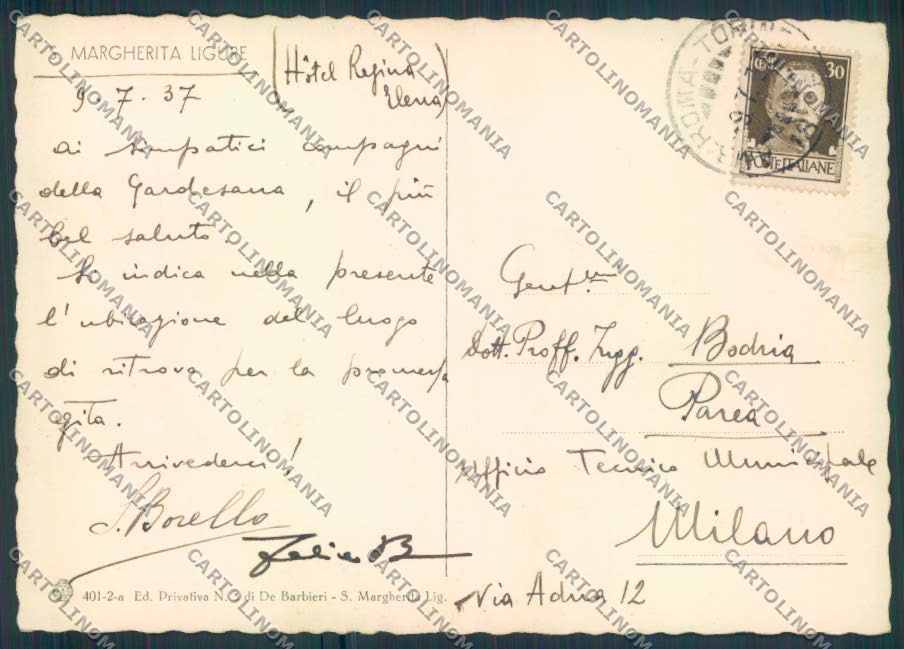 MARGHERITA LIGURE
(Hôtel Regina
Elena)
9.7.37
ai simpatici compagni
della Gardesana, il più
bel saluto
Si indica nella presente
l'ubicazione del luogo
di ritrovo per la promessa
gita.
Arrivederci!
S. Borello
Felice B
401-2-a Ed. Privativa N. 5 di De Barbieri - S. Margherita Lig.
CENT. 30
POSTE ITALIANE
ROMA-TORINO
Dott. Proff. Ingg. Bodria
Parea
Ufficio Tecnico Municipale
Milano
Via Adua 12
CARTOLINOMANIA